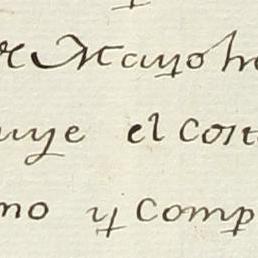 de Mayo he
uye el cost
mo y comp